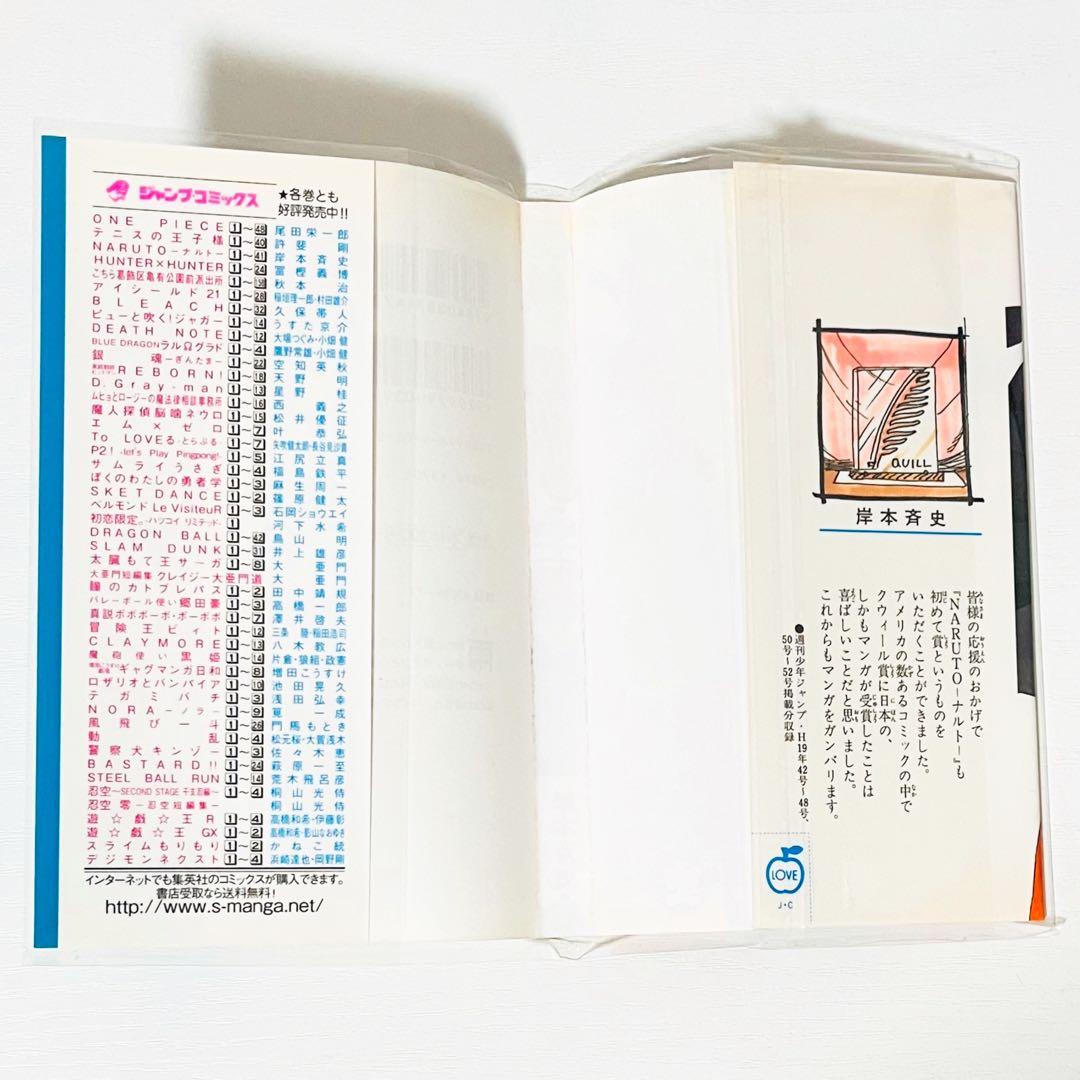 ジャンプ・コミックス
★各巻とも
好評発売中!!
ONE PIECE 1〜48 尾田栄一郎
テニスの王子様 1〜40 許斐 剛
NARUTO―ナルト― 1〜41 岸本斉史
HUNTER×HUNTER 1〜24 冨樫義博
こちら葛飾区亀有公園前派出所 秋本 治
アイシールド21 1〜28 稲垣理一郎・村田雄介
BLEACH 1〜32 久保帯人
ピューと吹く!ジャガー 1〜14 うすた京介
DEATH NOTE 1〜12 大場つぐみ・小畑 健
BLUE DRAGONラルΩグラド 1〜4 鷹野常雄・小畑 健
銀魂―ぎんたま― 1〜22 空知英秋
家庭教師ヒットマンREBORN! 1〜18 天野 明
D.Gray-man 1〜13 星野 桂
ムヒョとロージーの魔法律相談事務所 1〜16 西 義之
魔人探偵脳噛ネウロ 1〜15 松井優征
エム×ゼロ 1〜7 叶 恭弘
To LOVEる―とらぶる― 1〜7 矢吹健太朗・長谷見沙貴
P2!-let's Play Pingpong!- 1〜5 江尻立真
サムライうさぎ 1〜4 福島鉄平
ぼくのわたしの勇者学 1〜3 麻生周一
SKET DANCE 1〜2 篠原健太
ベルモンド Le VisiteuR 1〜3 石岡ショウエイ
初恋限定。-ハツコイ リミテッド- 1 河下水希
DRAGON BALL 1〜42 鳥山 明
SLAM DUNK 1〜31 井上雄彦
太臓もて王サーガ 1〜8 大亜門
大亜門短編集 クレイジー大亜門道 大亜門
瞳のカトブレパス 1〜2 田中靖規
バレーボール使い 郷田豪 1〜3 高橋一郎
真説ボボボーボ・ボーボボ 1〜7 澤井啓夫
冒険王ビィト 1〜12 三条 陸・稲田浩司
CLAYMORE 1〜13 八木教広
魔砲使い黒姫 1〜14 片倉・狼組・政憲
ギャグマンガ日和 1〜8 増田こうすけ
ロザリオとバンパイア 1〜10 池田晃久
テガミバチ 1〜3 浅田弘幸
NORA―ノラ― 1〜9 筧 一成
風飛び一斗 1〜26 門馬もとき
動乱 1〜4 松元桜・大賀浅木
警察犬キンゾー 1〜3 佐々木恵
BASTARD!! 1〜24 萩原一至
STEEL BALL RUN 1〜14 荒木飛呂彦
忍空〜SECOND STAGE 干支忍編〜 1〜4 桐山光侍
忍空 零―忍空短編集― 桐山光侍
遊☆戯☆王R 1〜4 高橋和希・伊藤彰
遊☆戯☆王GX 1〜2 高橋和希・影山なおゆき
スライムもりもり 1〜2 かねこ統
デジモンネクスト 1〜4 浜崎達也・岡野剛
インターネットでも集英社のコミックスが購入できます。
書店受取なら送料無料!
http://www.s-manga.net/
QUILL
岸本斉史
皆様の応援のおかげで
『NARUTO―ナルト―』も
初めて賞というものを
いただくことができました。
アメリカの数あるコミックの中で
クウィール賞に日本の、
しかもマンガが受賞したことは
喜ばしいことだと思いました。
これからもマンガをガンバリます。
●週刊少年ジャンプ・H19年42号〜48号、
50号〜52号掲載分収録
LOVE
J・C